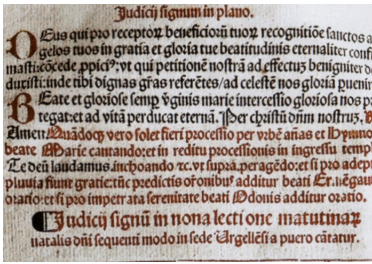 Judicij signum in plano.
Deus qui pro receptoꝝ beneficioꝝ tuoꝝ recognitiõe sanctos a
gelos tuos in gratia et gloria tue beatitudinis eternaliter confi
masti:cõcede ꝓpici⁹:vt qui petitionẽ nostrã ad effectuȝ benigniter d
duxisti:inde tibi dignas gr̃as referẽtes/ad celestẽ nos gloriã
Beate et gloriose semꝑ ṽginis marie intercessio gloriosa nos p
tegat:et ad vitã perducat eternã. Per christũ dñm nostruȝ.
Amen. Quãdoqȝ vero solet fieri processio per vrbẽ añas et Hymno
beate Marie cantando:et in reditu processionis in ingressu temp
Te deũ laudamus.inchoando ⁊c.vt supra.peragẽdo:et si pro adep
pluuia fiunt gratie:cũ predictis orõnibus additur beati
oratio:et si pro impetrata serenitate beati Odonis additur oratio.
Judicij signũ in nona lectione matutinaꝝ
natalis dñi sequenti modo in sede Urgellẽsi a puero cãtatur.